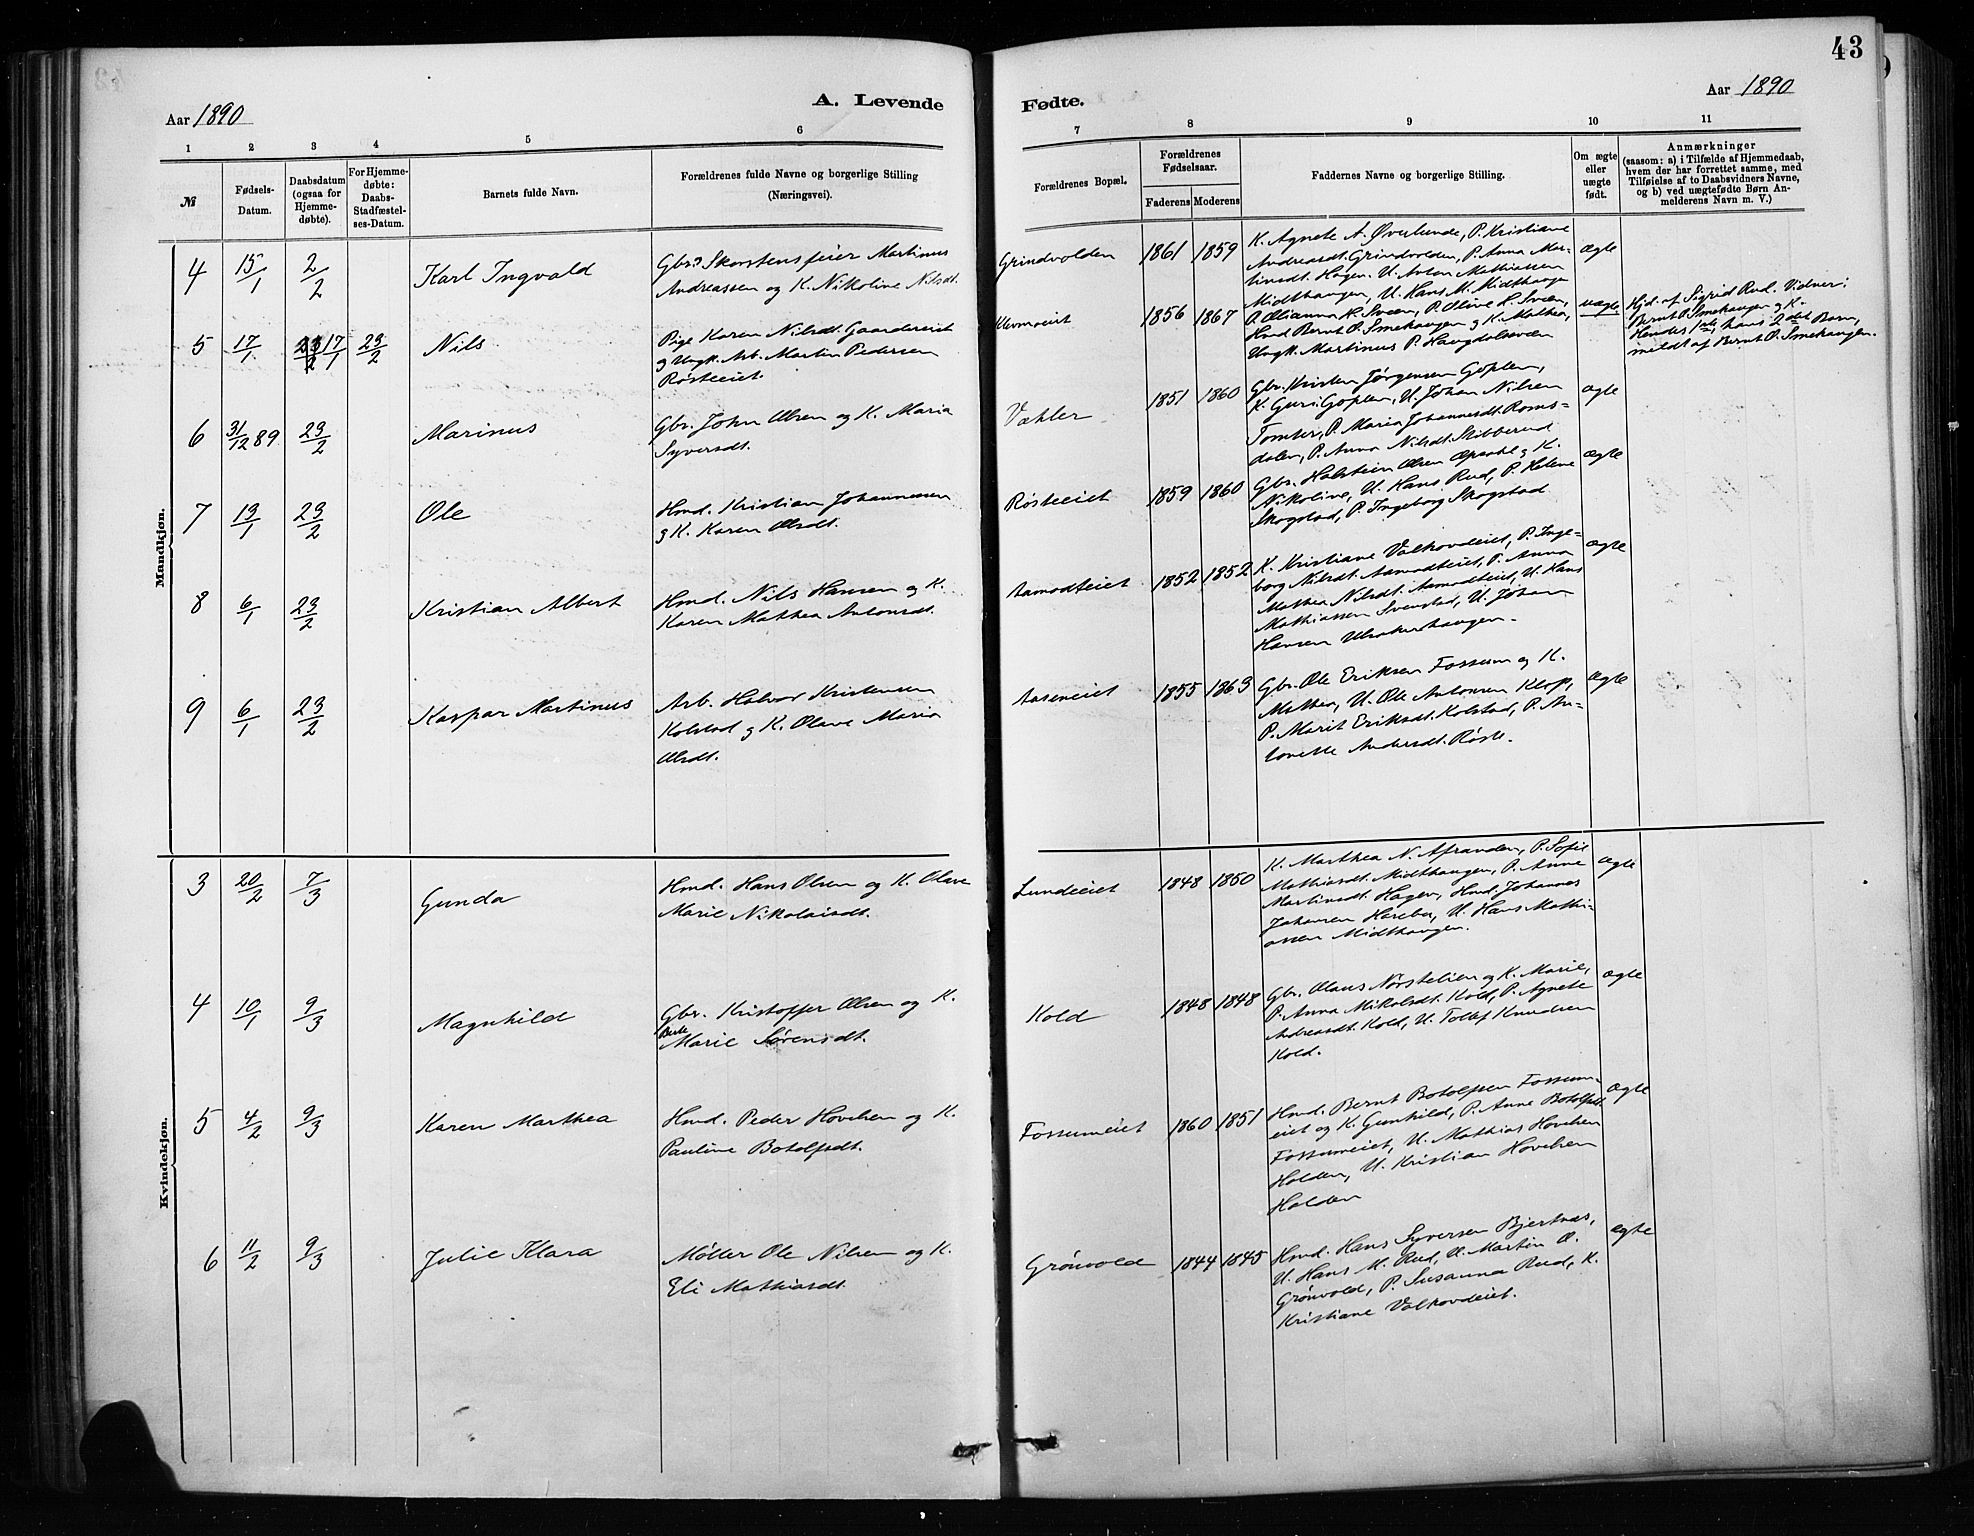 43
Aar 1890
A. Levende
Fødte.
Aar 1890
1 2 3 4 5 6 7 8 9 10 11
№
Fødsels-
Datum.
Daabsdatum
(ogsaa for
Hjemme-
døbte).
For Hjemme-
døbte:
Daabs-
Stadfæstel-
ses-Datum.
Barnets fulde Navn.
Forældrenes fulde Navne og borgerlige Stilling
(Næringsvei).
Forældrenes Bopæl.
Forældrenes
Fødselsaar.
Faderens Moderens
Faddernes Navne og borgerlige Stilling.
Om ægte
eller
uægte
født.
Anmærkninger
(saasom: a) i Tilfælde af Hjemmedaab,
hvem der har forrettet samme, med
Tilføielse af to Daabsvidners Navne,
og b) ved uægtefødte Børn An-
melderens Navn m. V.)
Mandkjøn.
4 15/1 2/2 Karl Ingvald
Skorstensfeier Martinus
Andreassen og K. Nikoline Nilsdt.
Grindvolden 1861 1859
K. Agnete A. Øverlunde, P. Kristiane
Andreasdt. Grindvolden, P. Anna Mar-
tinsdt. Hagen, U. Anton Mathiassen
Midthaugen, U. Hans M. Midthaugen
ægte
5 17/1 17/1 23/2 Nils
Pige Karen Nilsdt. Gaardereiet
og Ungk. Arb. Martin Pedersen
Røsteeiet.
1856 1867
P. Olianna H. Sveen, P. Oline H. Sveen,
Hmd Bernt O. Smehaugen og K. Mathea,
Ungk. Martinus P. Haugdalssveen
uægte
Hjd. af Sigrid Rud. Vidner:
Bernt O. Smehaugen og K.
Hendes 1ste, hans 2det Barn,
meldt af Bernt O. Smehaugen.
6 31/12 89 23/2 Marinus
Gbr. John Olsen og K. Maria
Syversdt.
Væhler 1851 1860
Gbr. Kristen Jørgensen Goplen,
K. Guri Goplen, U. Johan Nilsen
Tomter, P. Maria Johannesdt. Roms-
dalen, P. Anna Nilsdt. Stibberud
ægte
7 13/1 23/2 Ole
Hmd. Kristian Johannessen
og K. Karen Olsdt.
Røsteeiet 1859 1860
Gbr. Halstein Olsen Opsahl og K.
Nikoline, U. Hans Rud, P. Helene
Skogstad, P. Ingeborg Skogstad
ægte
8 6/1 23/2 Kristian Albert
Hmd. Nils Hansen og K.
Karen Mathea Antonsdt.
Aamodteiet 1852 1852
K. Kristiane Valhovdeiet, P. Inge-
borg Nilsdt. Aamodteiet, P. Anna
Mathea Nilsdt. Aamodteiet, U. Hans
Mathiassen Svenstad, U. Johan
Hansen Ulsakerhaugen.
ægte
9 6/1 23/2 Kaspar Martinus
Arb. Halvor Kristensen
Kolstad og K. Olave Maria
Olsdt.
Aaseneiet 1855 1863
Gbr. Ole Eriksen Fossum og K.
Mathea, U. Ole Antonsen Klop,
P. Marit Eriksdt. Kolstad, P. An-
tonette Andersdt. Røste.
ægte
Kvindekjøn.
3 20/2 7/3 Gunda
Hmd. Hans Olsen og K. Olave
Marie Nikolaisdt.
Lundeeiet 1848 1860
K. Marthea N. P. Sofie
Mathiasdt. Midthaugen, P. Anne
Martinsdt. Hagen, Hmd. Johannes
Johansen Hareba, U. Hans Mathi-
assen Midthaugen.
ægte
4 10/1 9/3 Magnhild
Gbr. Kristoffer Olsen og K.
Berte
Marie Sørensdt.
Kold 1848 1848
Gbr. Olaus Nørstelien og K. Marie,
P. Anna Nikolsdt. Kold, P. Agnete
Andreasdt. Kold, U. Tollef Knudsen
Kold.
ægte
5 4/2 9/3 Karen Marthea
Hmd. Peder Hovelsen og K.
Pauline Botolfsdt.
Fossumeiet 1860 1851
Hmd. Bernt Botolfsen Fossum-
eiet og K. Gunhild, P. Anne Botolfsdt.
Fossumeiet, U. Mathias Hovelsen
Holden, U. Kristian Hovelsen
Holden
ægte
6 11/2 9/3 Julie Klara
Møller Ole Nilsen og K.
Eli Mathiasdt.
Grønvold 1844 1845
Hmd. Hans Syversen Bjertnæs,
U. Hans M. Rud, U. Martin O.
Grønvold, P. Susanna Rud, K.
Kristiane Valhovdeiet.
ægte